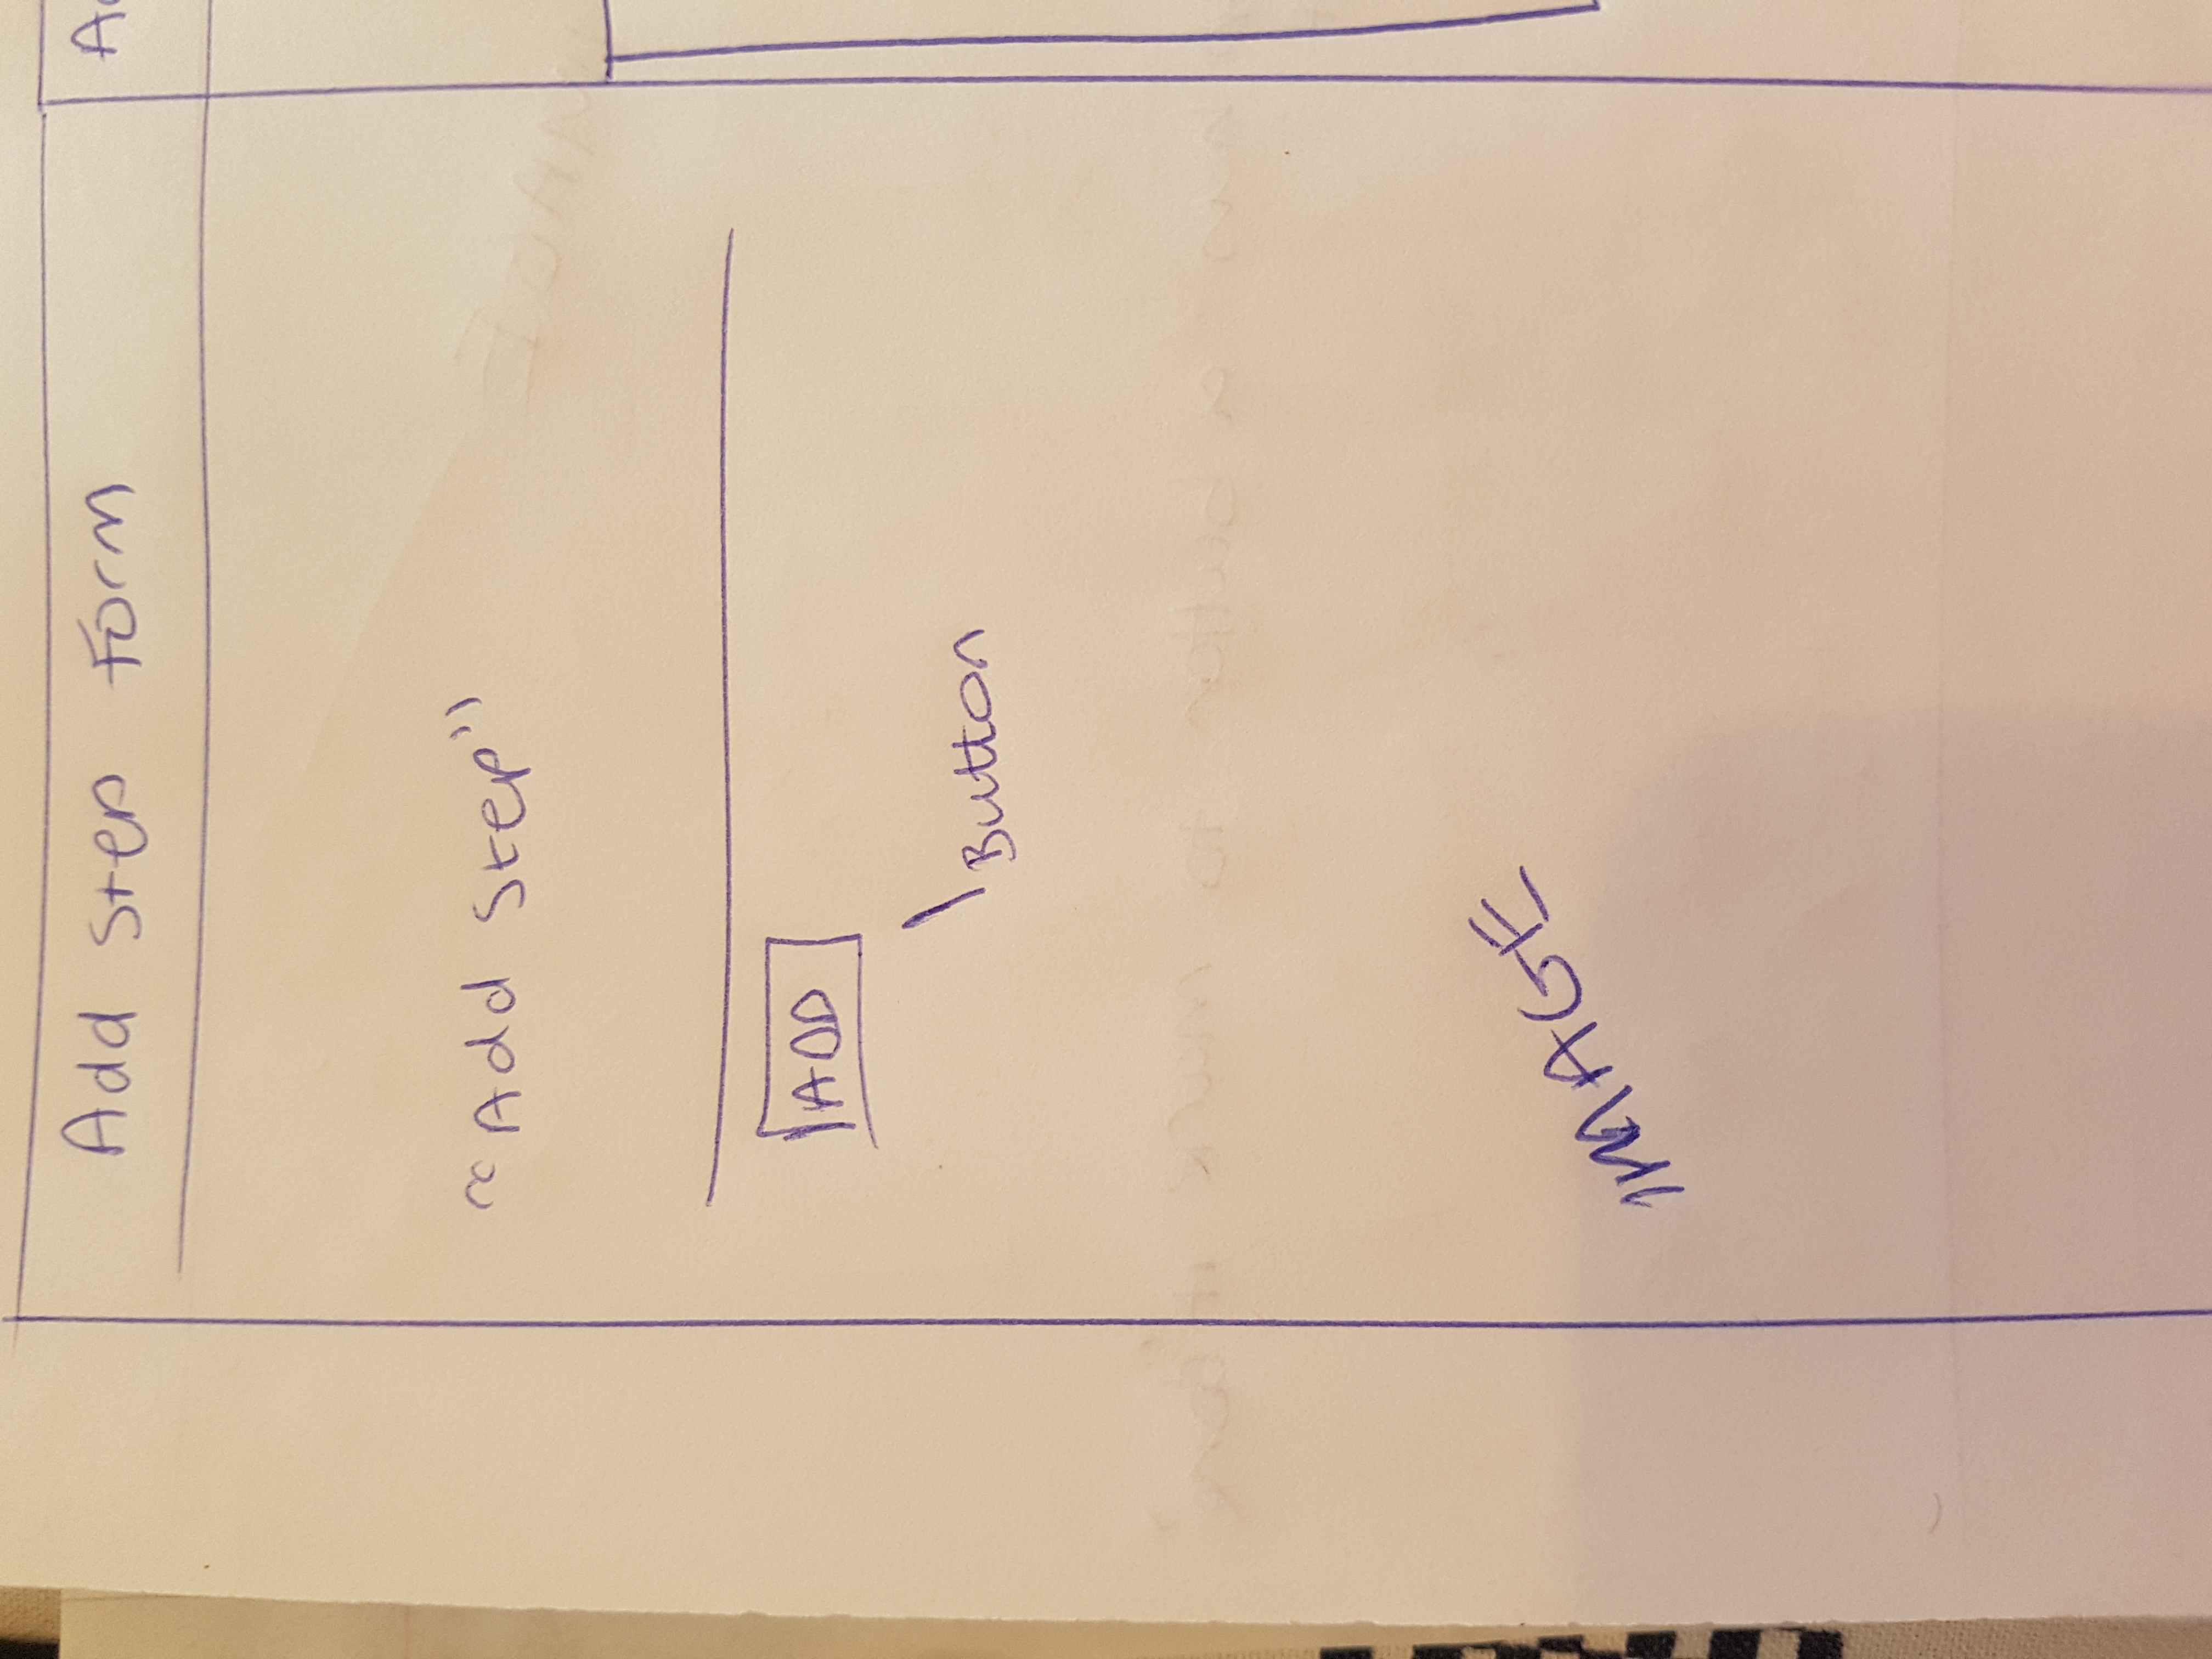 Add Step Form
"Add Step"
ADD
Button
IMAGE